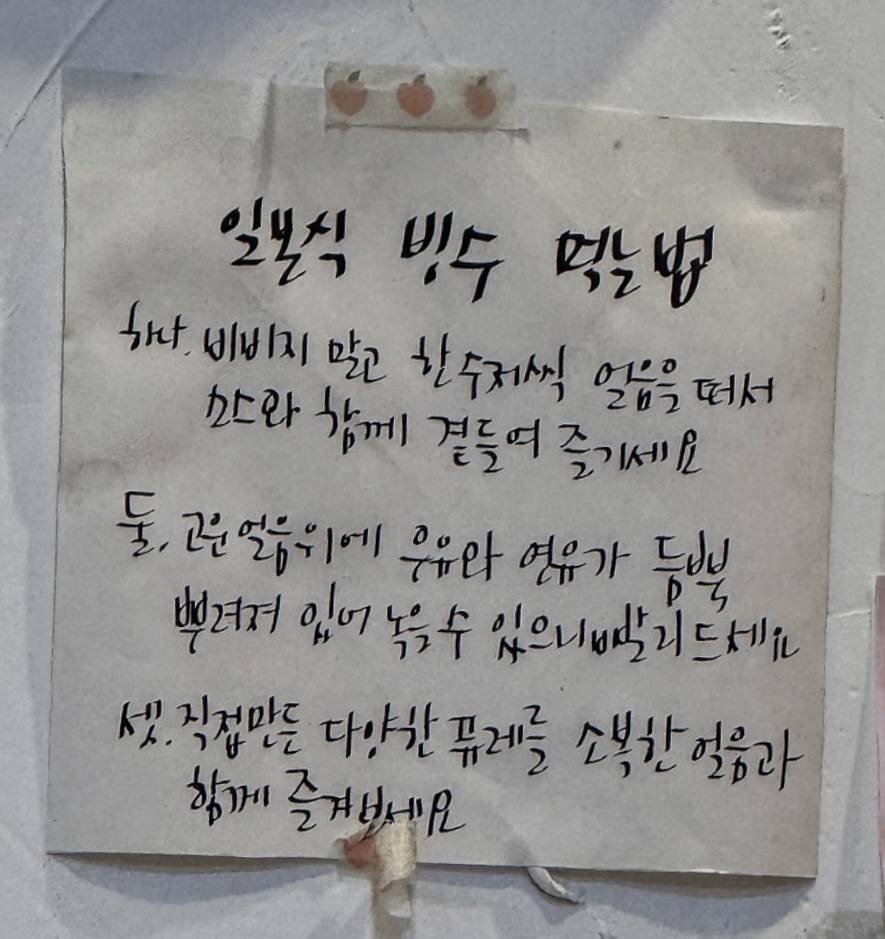 일본식 빙수 먹는법
하나. 비비지 말고 한수저씩 얼음을 떠서
소스와 함께 곁들여 즐기세요
둘. 고운얼음위에 우유와 연유가 듬뿍
뿌려져 있어 녹을수 있으니빨리드세요
셋. 직접만든 다양한 퓨레를 소복한얼음과
함께 즐겨보세요